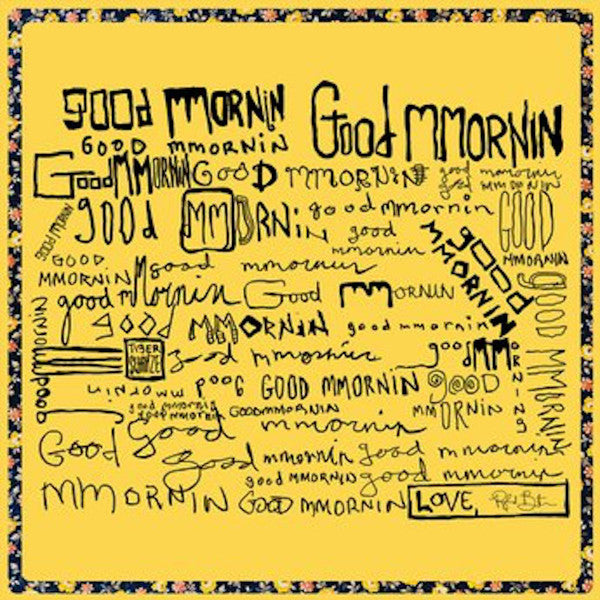 good MMORNIN
Good MMORNIN
GOOD MMORNIN
Good MMORNIN GooD MMORNiN
good mmornin
good MMORNIN
GOOD MMORNIN
good MMORNIN
good MMORNiN good mmornin
good mmornin
good MMORNIN
GOOD MMORNIN
Good mmornin
good mMornin Good MMORNIN
GOOD MMORNIN
good MMORNiN good mmornin
GOOD MMORNIN
TYBER
good mmornin
good MMORNING
good mmornin
GOOD MMORNIN
good MMORNiN
good mmornin
good mmornin
GOODMMORNIN
Good
good mmornin
good mmornin good mmornin
good MMORNIN good mmornin
MMORNIN GOOD MMORNIN
LOVE,